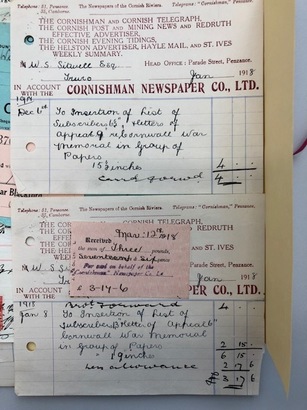 Telephone: 51, Penzance. The Newspapers of the Cornish Riviera. Telegrams: "Cornishman," Penzance.
THE CORNISHMAN AND CORNISH TELEGRAPH,
THE CORNISH POST AND MINING NEWS AND REDRUTH
EFFECTIVE ADVERTISER,
THE CORNISH EVENING TIDINGS,
THE HELSTON ADVERTISER, HAYLE MAIL, AND ST. IVES
WEEKLY SUMMARY.
HEAD OFFICE: Parade Street, Penzance.
W. S. Sitwell Esq
Truro Jan 1918
IN ACCOUNT WITH THE CORNISHMAN NEWSPAPER CO., LTD.
Dec 6th To Insertion of List of
Subscribers & Letters of
Appeal re Cornwall War
Memorial in Group of
Papers
15 inches 4
Carrd forwd 4
Telephone: 51, Penzance. The Newspapers of the Cornish Riviera. "Cornishman," Penzance.
CORNISH TELEGRAPH,
NEWS AND REDRUTH
AND ST. IVES
Street, Penzance.
W. S.
Jan 1918
IN ACCOUNT WITH THE
ER CO., LTD.
Mar: 1918
Received
the sum of Three pounds,
Seventeen & Six pence
for and on behalf of the
"Cornishman" Newspaper Co. Ld
£ 3-17-6
1918 Brot Forward 4
Jan 8 To Insertion of List of
Subscribers & Letter of Appeal
Cornwall War Memorial
in Group of Papers 2 15
9 inches 6 15
Less allowance 2 17 6
3 17 6